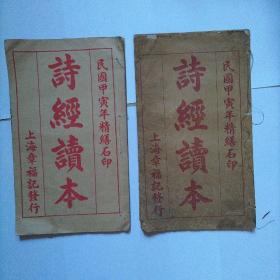 民國甲寅年精繕石印
詩經讀本
上海章福記發行
民國甲寅年精繕石印
詩經讀本
上海章福記發行